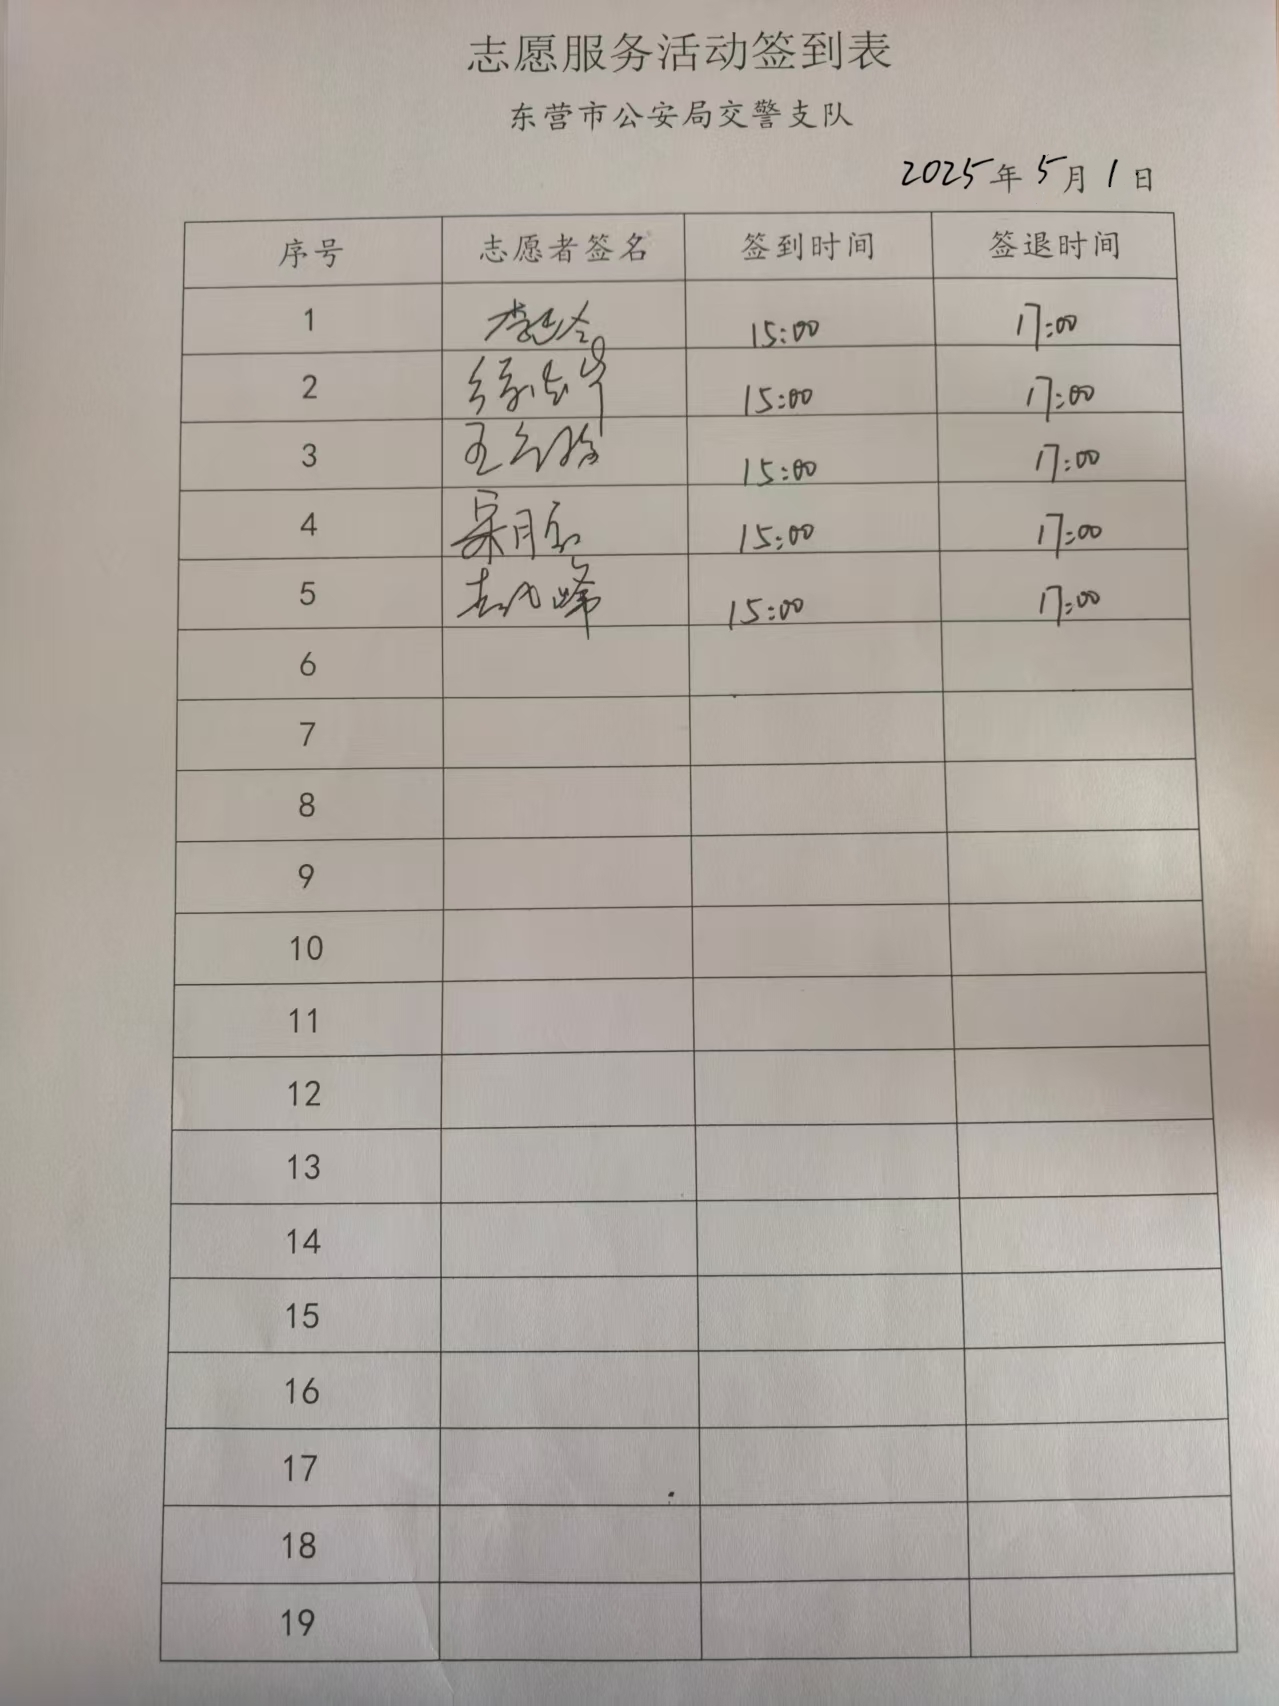 志愿服务活动签到表
东营市公安局交警支队
2025年5月1日
序号 志愿者签名 签到时间 签退时间
1 15:00 17:00
2 15:00 17:00
3 王 15:00 17:00
4 15:00 17:00
5 峰 15:00 17:00
6
7
8
9
10
11
12
13
14
15
16
17
18
19